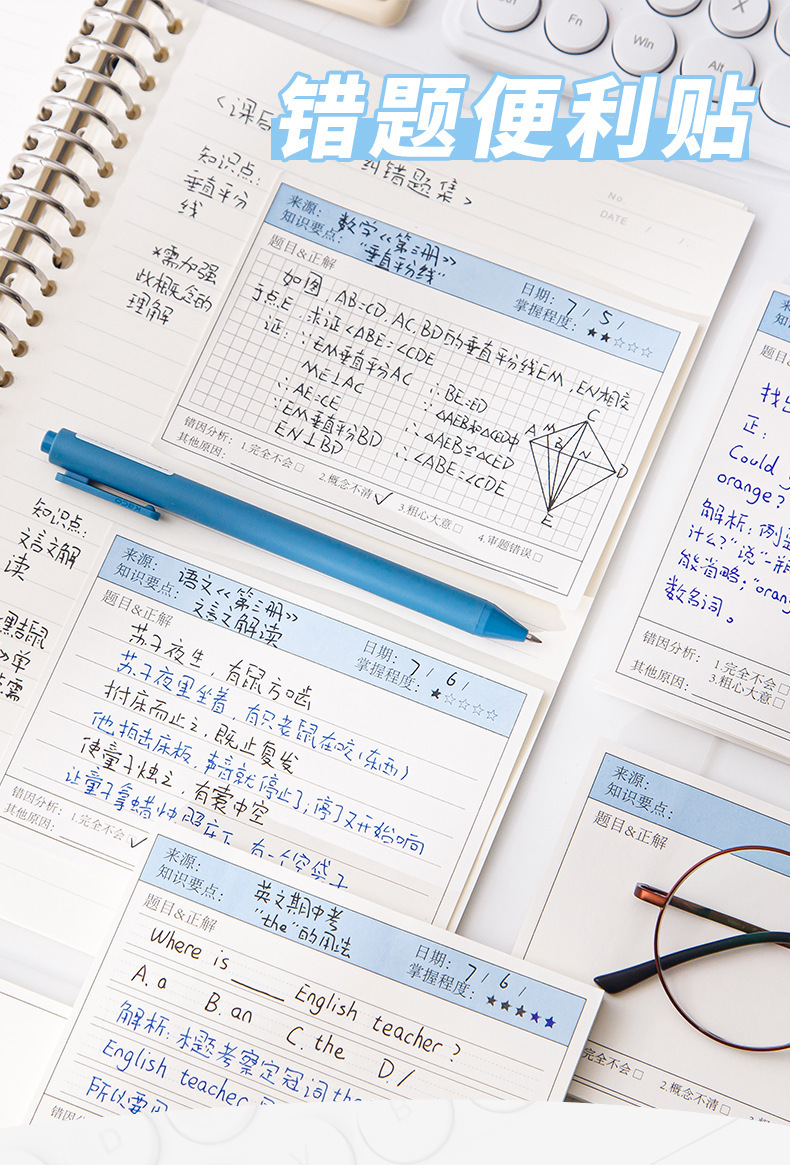 错题便利贴
Fn
Win
Alt
<课后
纠错题集>
No.
DATE / /
知识点:
垂直平分
线
*需加强
此概念的
理解
来源: 数学《第三册》
知识要点: "垂直平分线"
日期: 7 / 5 /
掌握程度: ★★☆☆☆
题目&正解
如图, AB=CD, AC, BD的垂直平分线EM, EN相交
于点E, 求证∠ABE=∠CDE
证: ∵EM垂直平分AC
ME⊥AC
∴AE=CE
∵EM垂直平分BD
EN⊥BD
∴BE=ED
∵△AEB和△CED中
∴△AEB≌△CED
∴∠ABE=∠CDE
A
M
B
N
C
D
E
错因分析: 1.完全不会□ 2.概念不清☑ 3.粗心大意□ 4.审题错误□
其他原因:
KACO
知识点:
文言文解
读
来源: 语文《第三册》
知识要点: 文言文解读
日期: 7 / 6 /
掌握程度: ★☆☆☆☆
题目&正解
苏子夜坐, 有鼠方啮
苏子夜里坐着, 有只老鼠在咬(东西)
拊床而止之, 既止复发
他拍击床板, 声音就停止了, 停了又开始响
使童子烛之, 有橐中空
让童子拿蜡烛照床下, 有一个空袋子
错因分析: 1.完全不会☑
其他原因:
来源: 英文期中考
知识要点: "the"的用法
日期: 7 / 6 /
掌握程度: ★★★★★
题目&正解
Where is ____ English teacher?
A. a B. an C. the D. /
解析: 本题考察定冠词the
English teacher
所以要用
错因
题目
找出
正:
Could
orange?
解析:
什么?"说"一
能省略; "orang
数名词。
错因分析: 1.完全不会□
其他原因: 3.粗心大意□
来源:
知识要点:
题目&正解
完全不会□ 2.概念不清□